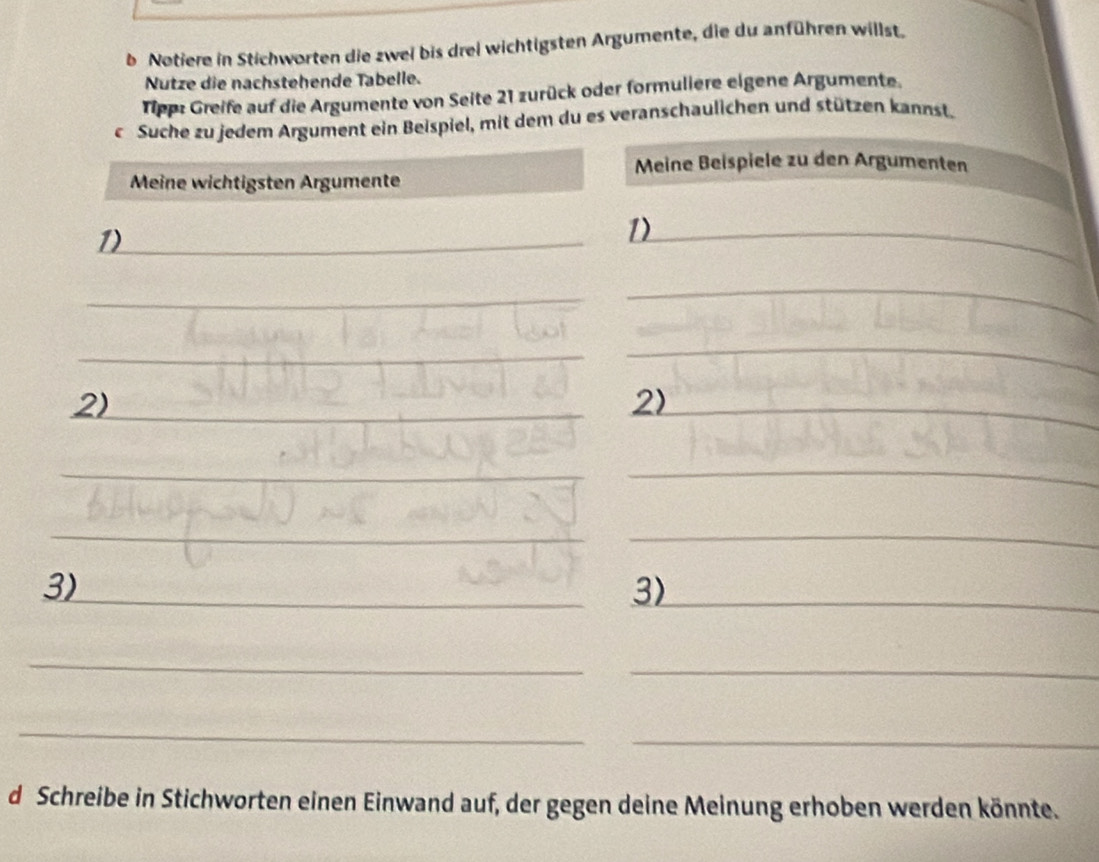 b Notiere in Stichworten die zwei bis drei wichtigsten Argumente, die du anführen willst.
Nutze die nachstehende Tabelle.
Tipp: Greife auf die Argumente von Seite 21 zurück oder formuliere eigene Argumente.
c Suche zu jedem Argument ein Beispiel, mit dem du es veranschaulichen und stützen kannst.
Meine wichtigsten Argumente
Meine Beispiele zu den Argumenten
1)
1)
2)
2)
3)
3)
d Schreibe in Stichworten einen Einwand auf, der gegen deine Meinung erhoben werden könnte.